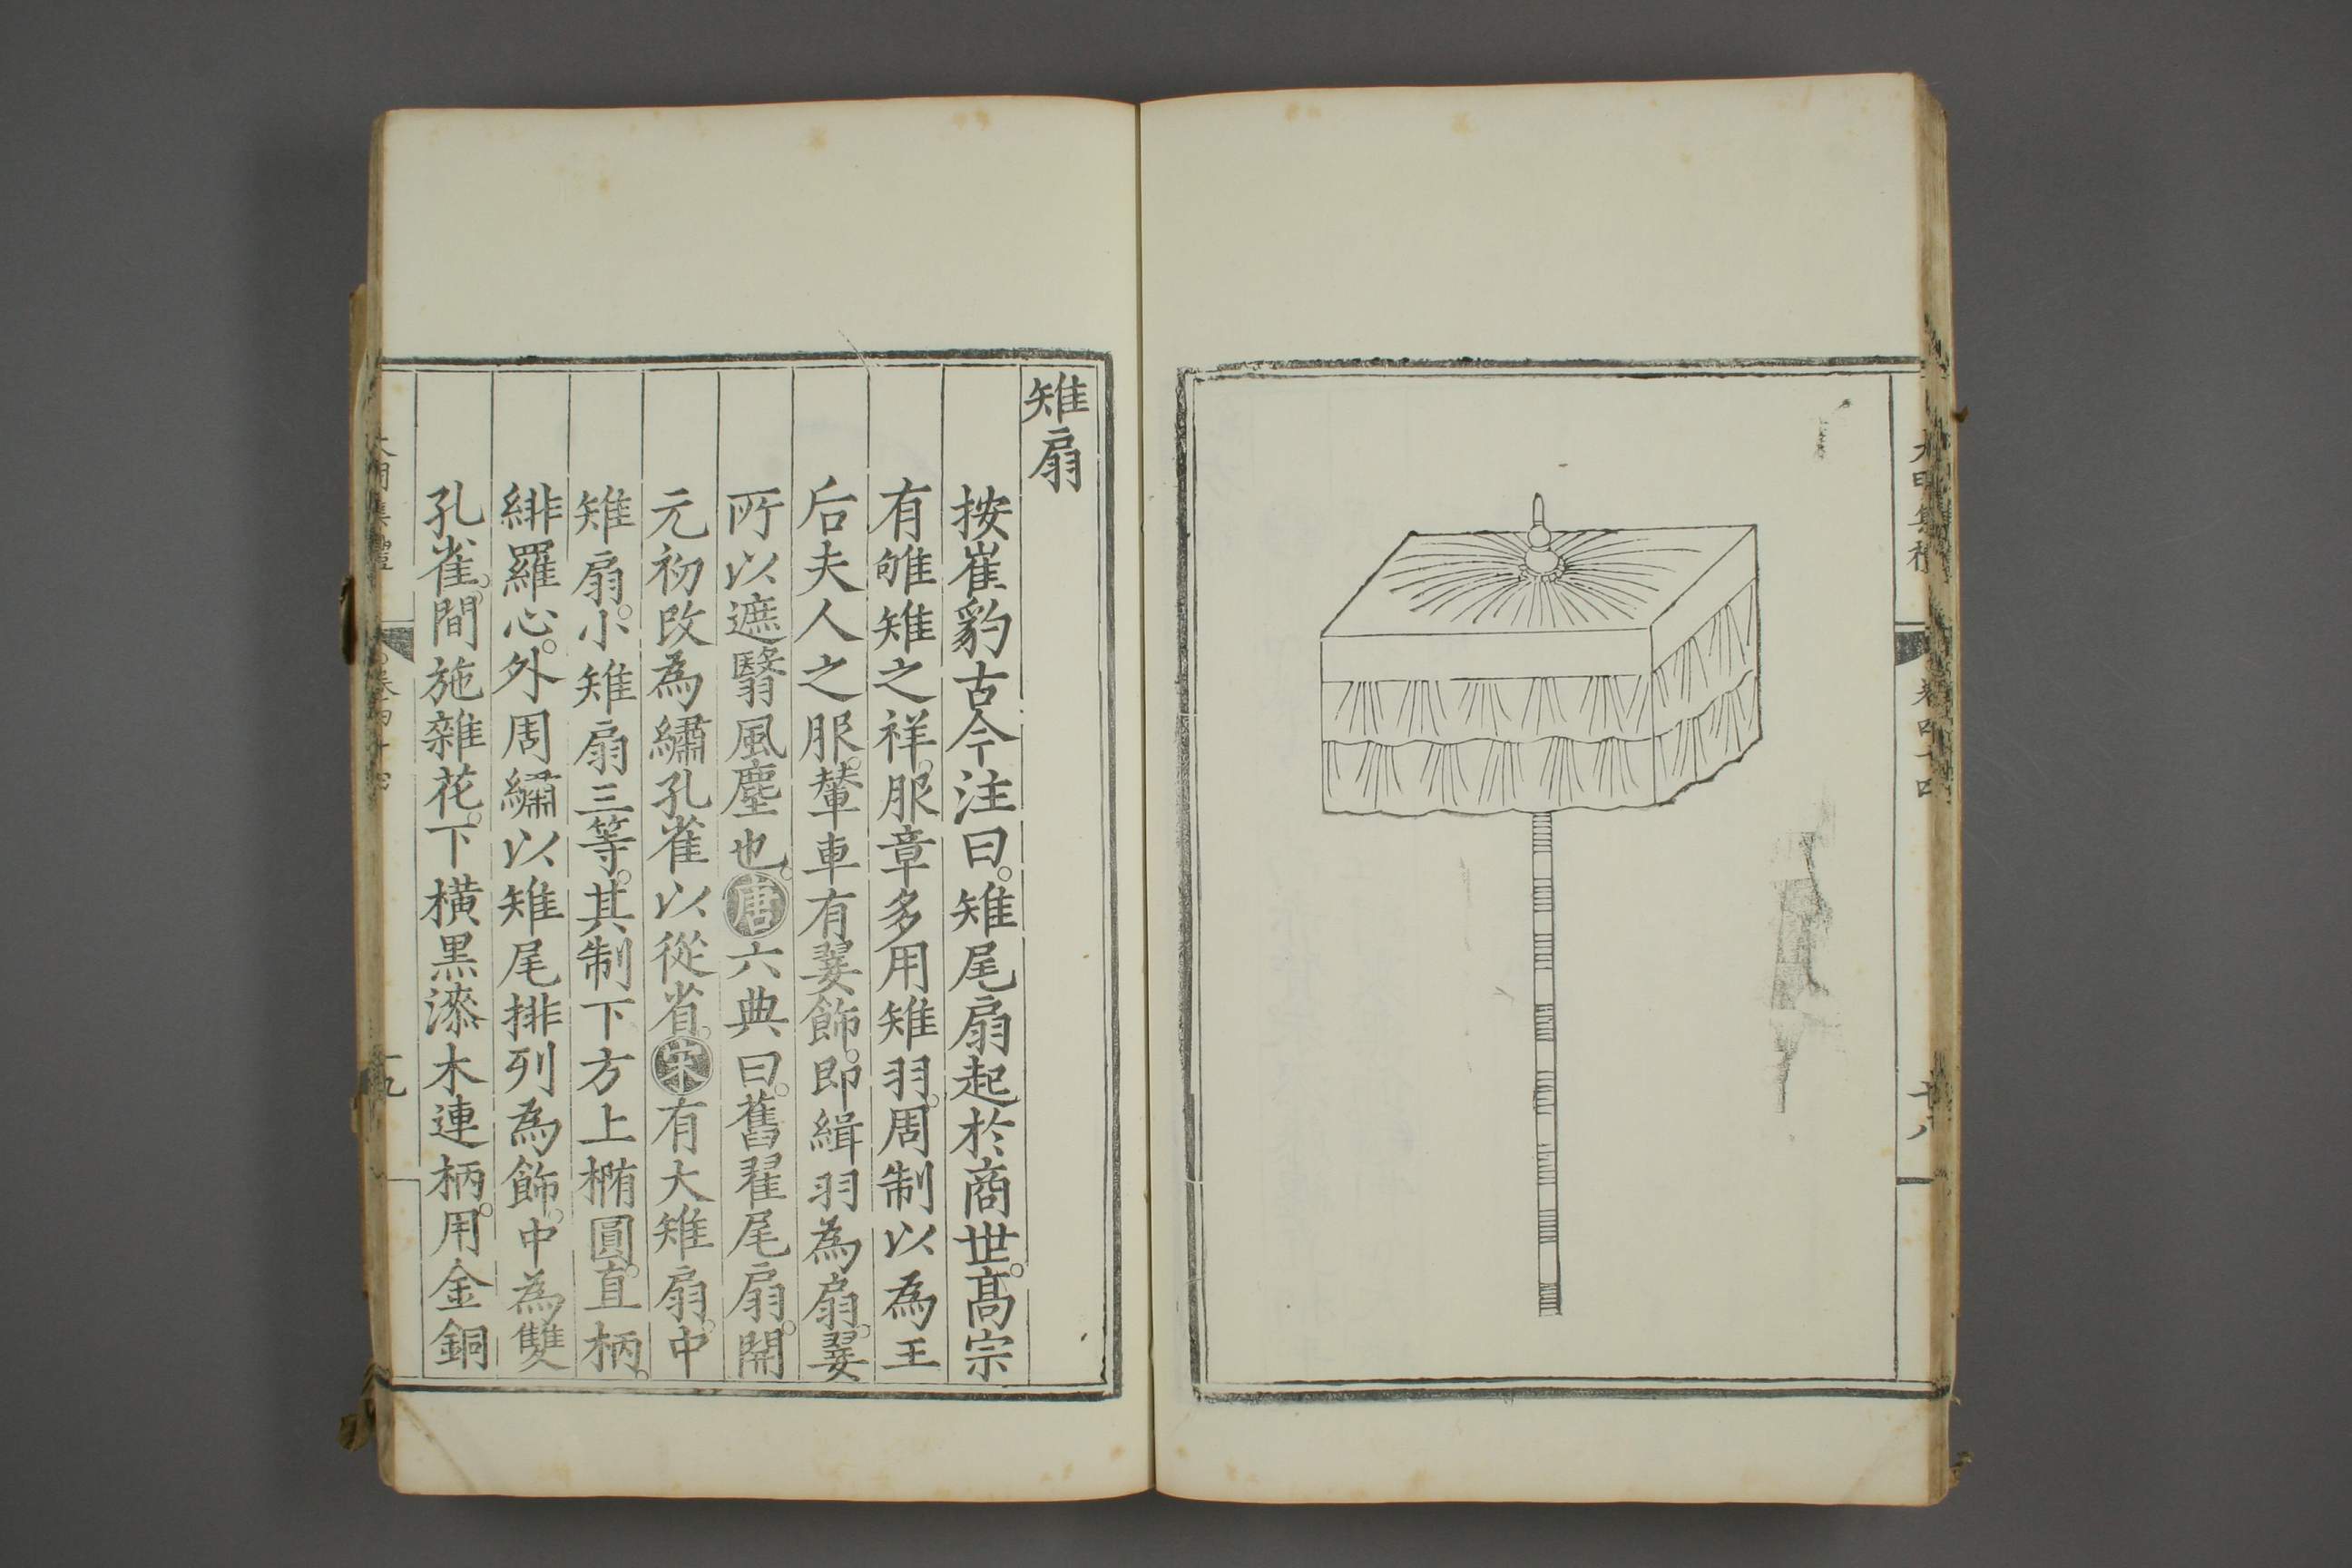 大明集禮
卷四十四
十八
雉扇
按崔豹古今注曰。雉尾扇起於商世。高宗
有雊雉之祥。服章多用雉羽。周制以為王
后夫人之服。輦車有翣飾。即緝羽為扇。翣
所以遮翳風塵也。唐六典曰。舊翟尾扇。開
元初改為繡孔雀以從省。宋有大雉扇。中
雉扇。小雉扇三等。其制下方上橢圓。直柄。
緋羅心。外周繡以雉尾排列為飾。中為雙
孔雀。間施雜花。下橫黑漆木連柄。用金銅
大明集禮
卷四十四
十九